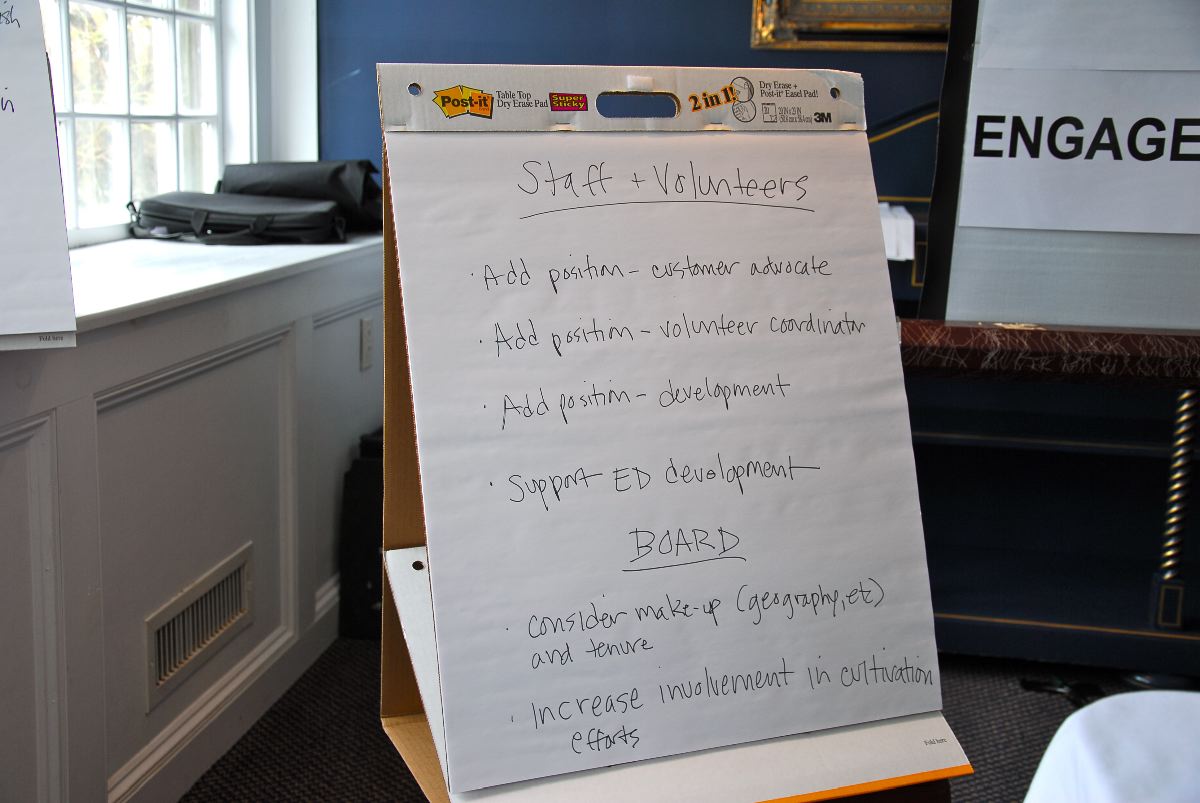 ish
in
Fold here
Post-it
Table Top
Dry Erase Pad
Super
Sticky
2 in 1!
Dry Erase +
Post-it® Easel Pad!
3M
ENGAGE
Staff + Volunteers
· Add position - customer advocate
· Add position - volunteer coordinator
· Add position - development
· Support ED development
BOARD
· consider make-up (geography, etc)
and tenure
· Increase involvement in cultivation
efforts
Fold here